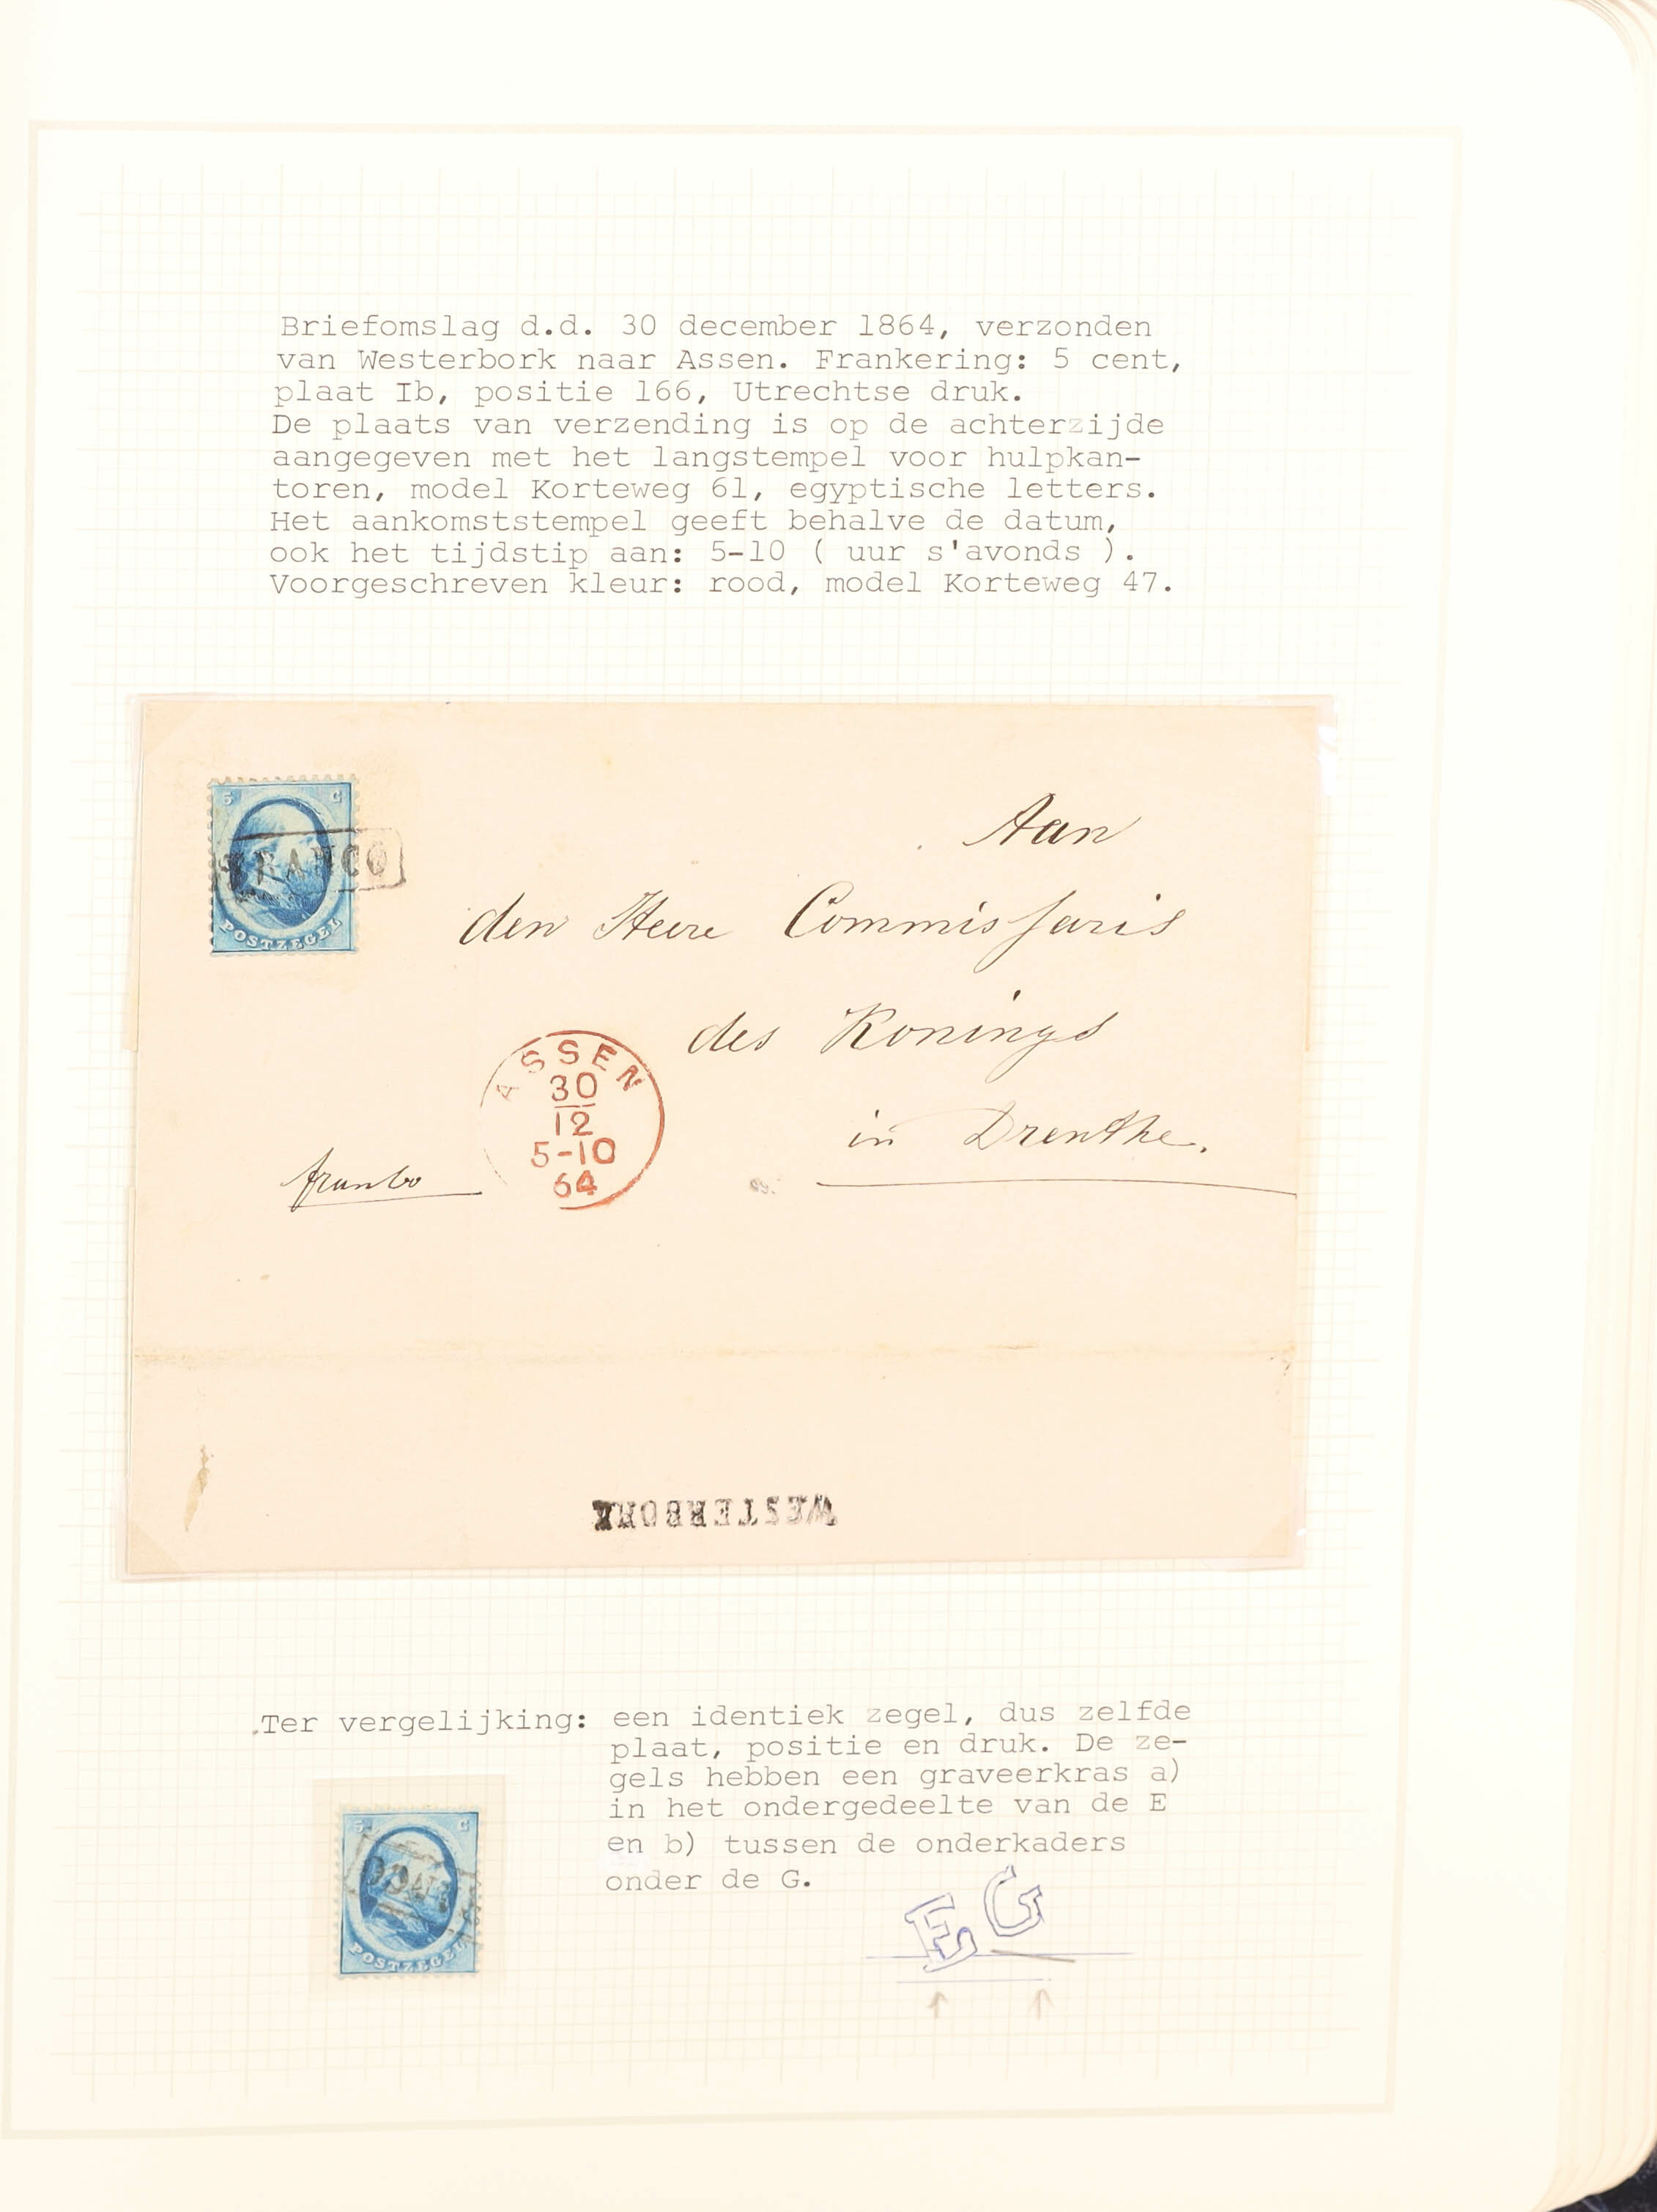 Briefomslag d.d. 30 december 1864, verzonden
van Westerbork naar Assen. Frankering: 5 cent,
plaat Ib, positie 166, Utrechtse druk.
De plaats van verzending is op de achterzijde
aangegeven met het langstempel voor hulpkan-
toren, model Korteweg 61, egyptische letters.
Het aankomststempel geeft behalve de datum,
ook het tijdstip aan: 5-10 ( uur s'avonds ).
Voorgeschreven kleur: rood, model Korteweg 47.
5 C
FRANCO
POSTZEGEL
Aan
den Heere Commissaris
des Konings
in Drenthe.
ASSEN
30
12
5-10
64
franco
WESTERBORK
Ter vergelijking: een identiek zegel, dus zelfde
plaat, positie en druk. De ze-
gels hebben een graveerkras a)
in het ondergedeelte van de E
en b) tussen de onderkaders
onder de G.
5 C
POSTZEGEL
E G